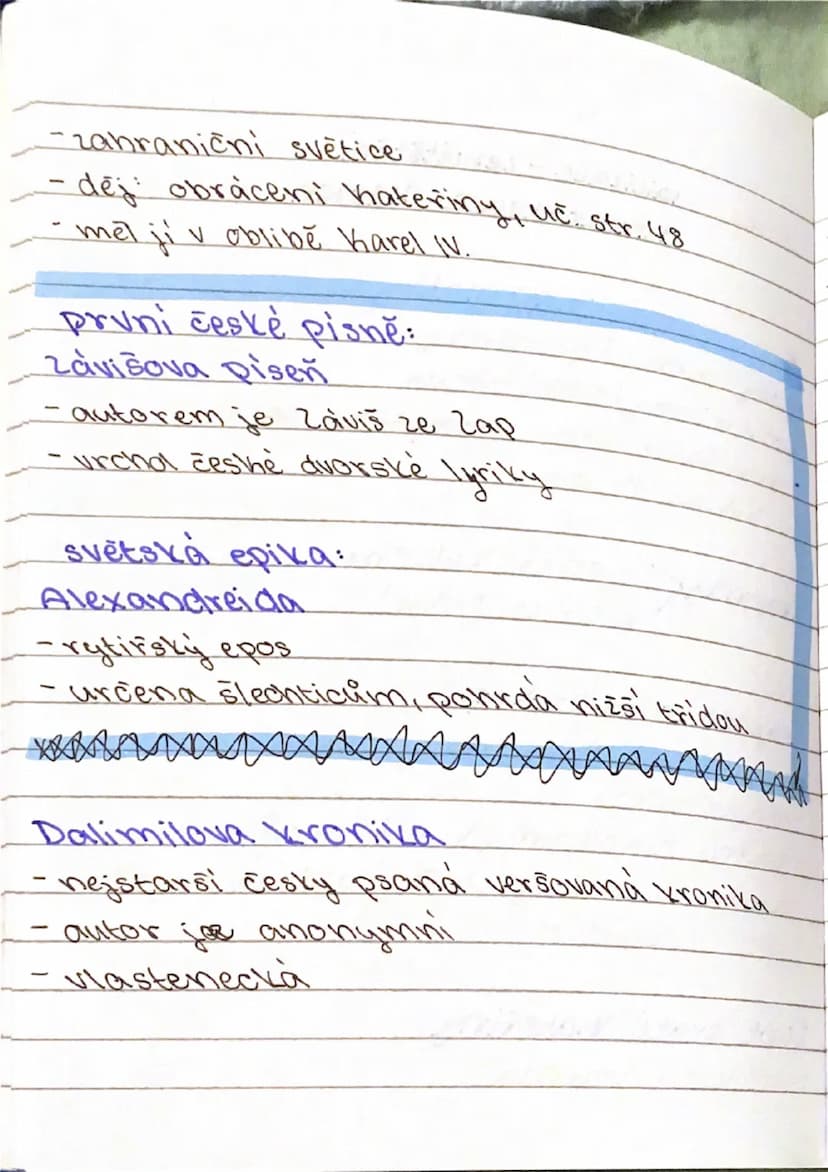 - zahraniční světice
- děj: obrácení Kateřiny, uč. str. 48
- měl ji v oblibě Karel IV.
první české písně:
Závišova píseň
- autorem je Záviš ze Zap
- vrchol české dvorské lyriky
světská epika:
Alexandreida
- rytířský epos
- určena šlechticům, pohrdá nižší třídou
Dalimilova kronika
- nejstarší česky psaná veršovaná kronika
- autor je anonymní
- vlastenecká